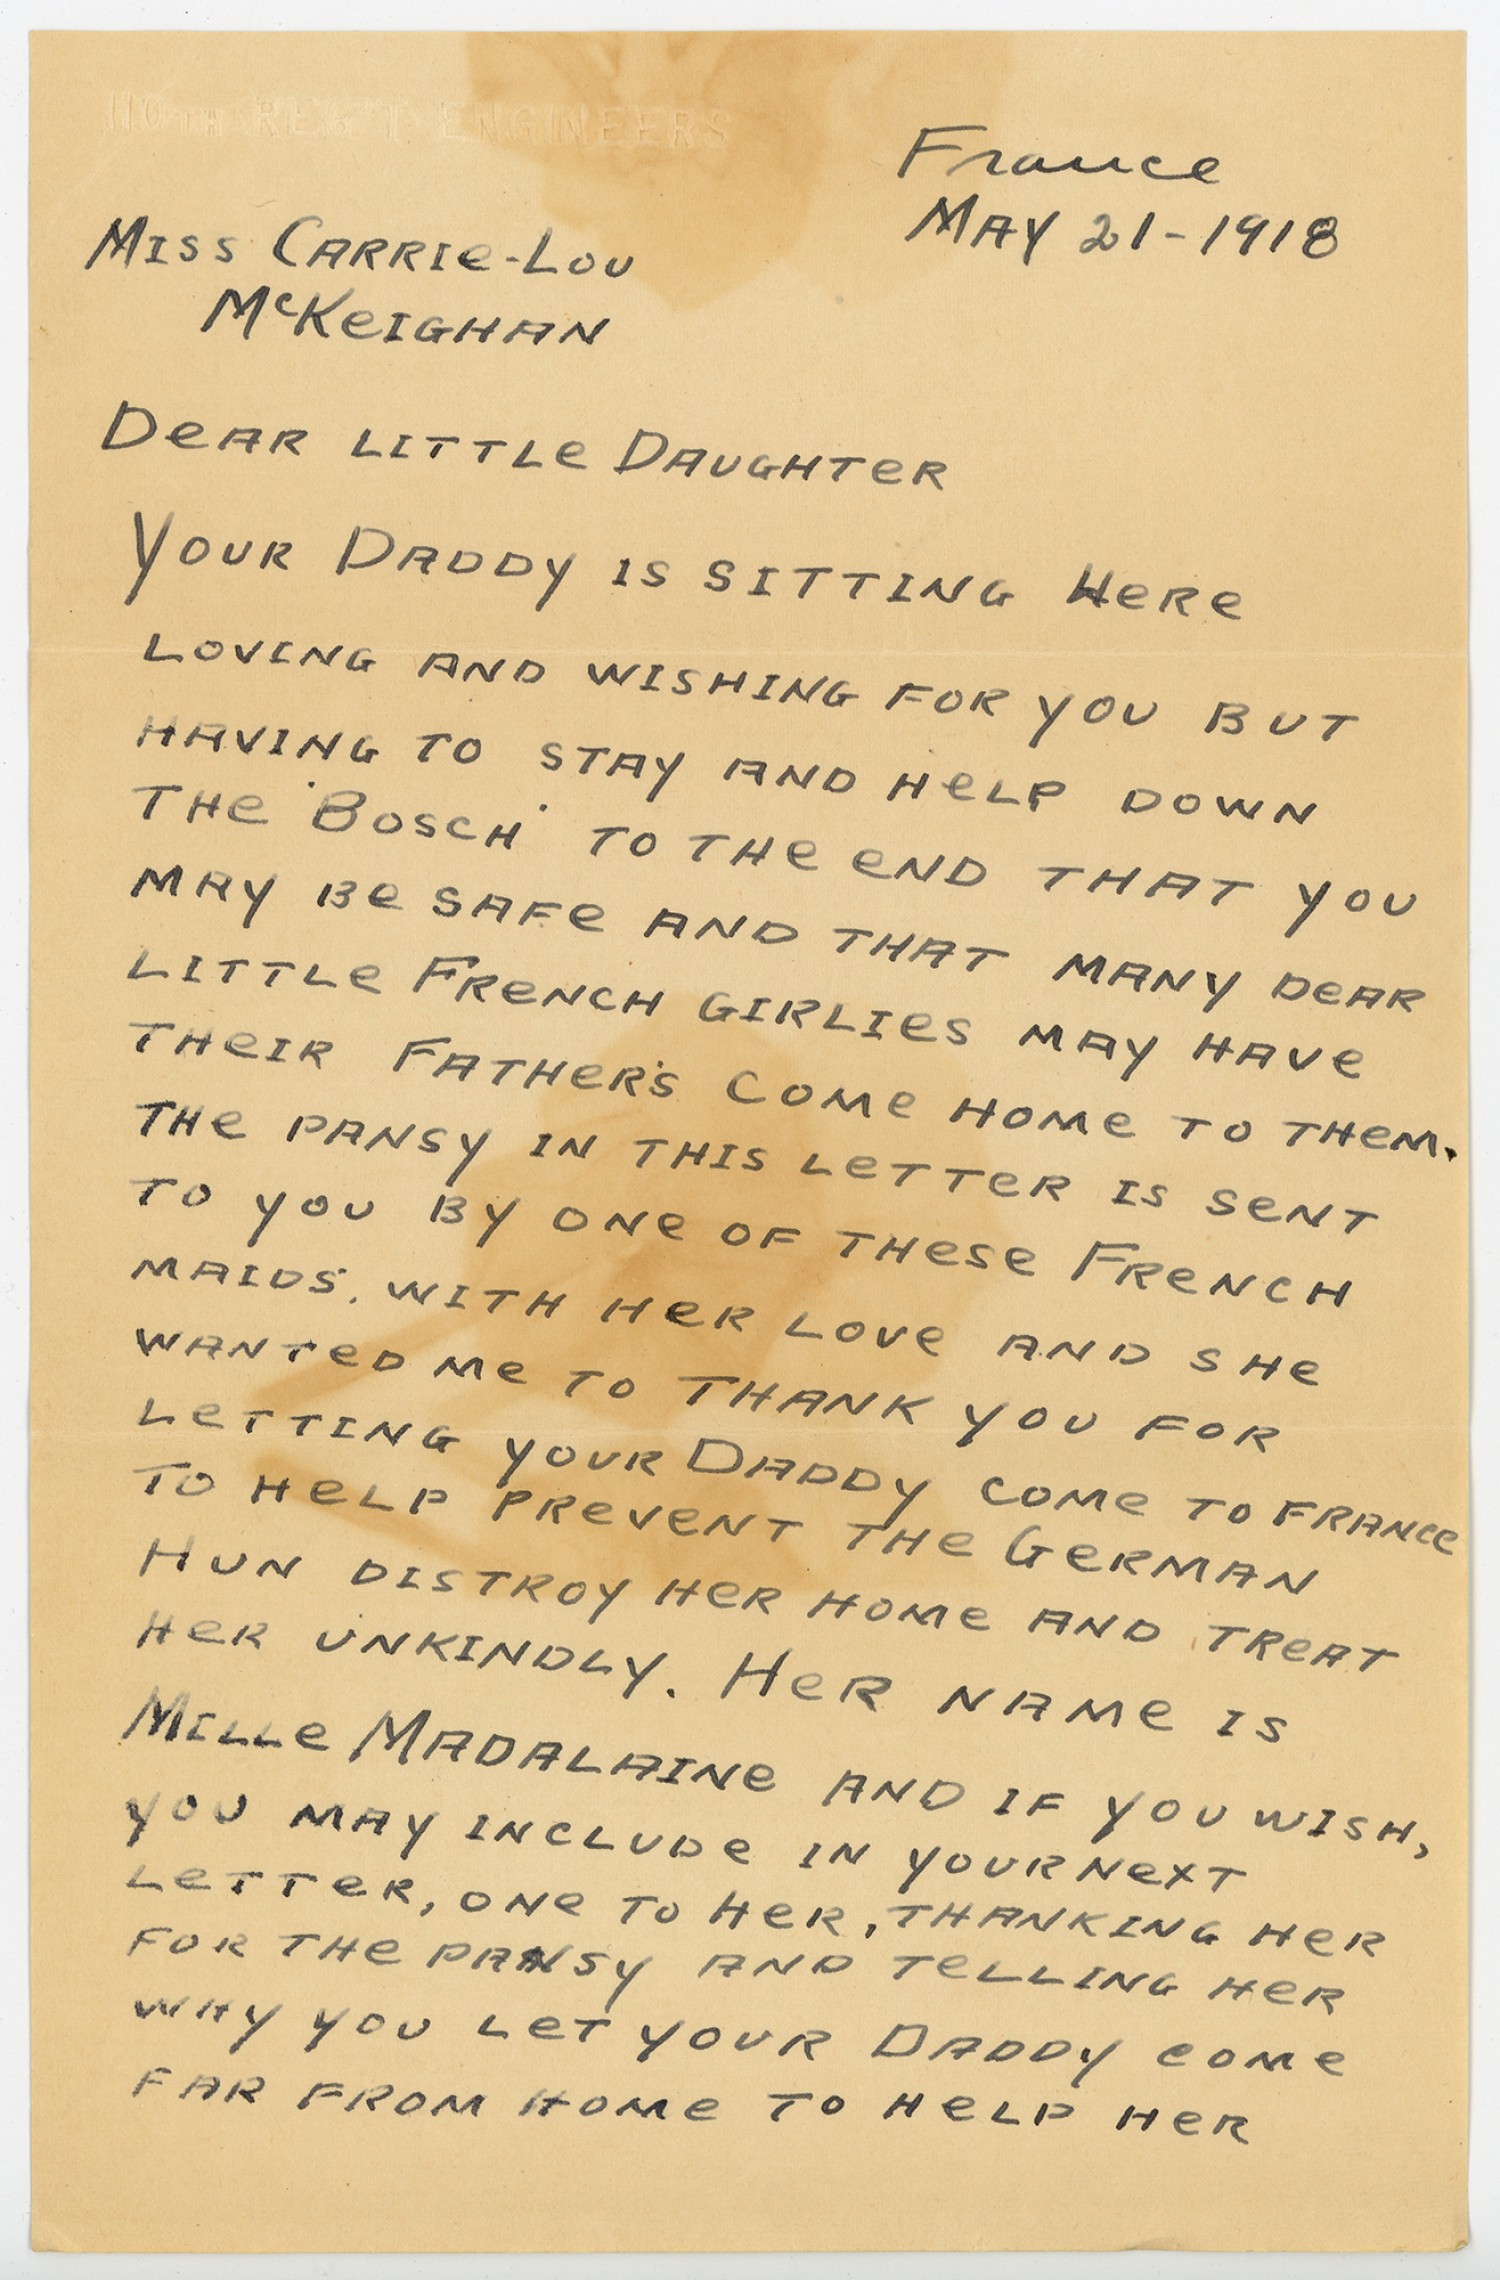 110TH REG'T ENGINEERS
France
May 21-1918
Miss Carrie-Lou
McKeighan
Dear little Daughter
Your Daddy is sitting here
loving and wishing for you but
having to stay and help down
the "Bosch" to the end that you
may be safe and that many dear
little French girlies may have
their Father's come home to them.
The pansy in this letter is sent
to you by one of these French
maids. with her love and she
wanted me to thank you for
letting your Daddy come to France
to help prevent the German
Hun distroy her home and treat
her unkindly. Her name is
Mille Madalaine and if you wish,
you may include in your next
letter, one to her, thanking her
for the pansy and telling her
why you let your Daddy come
far from home to help her